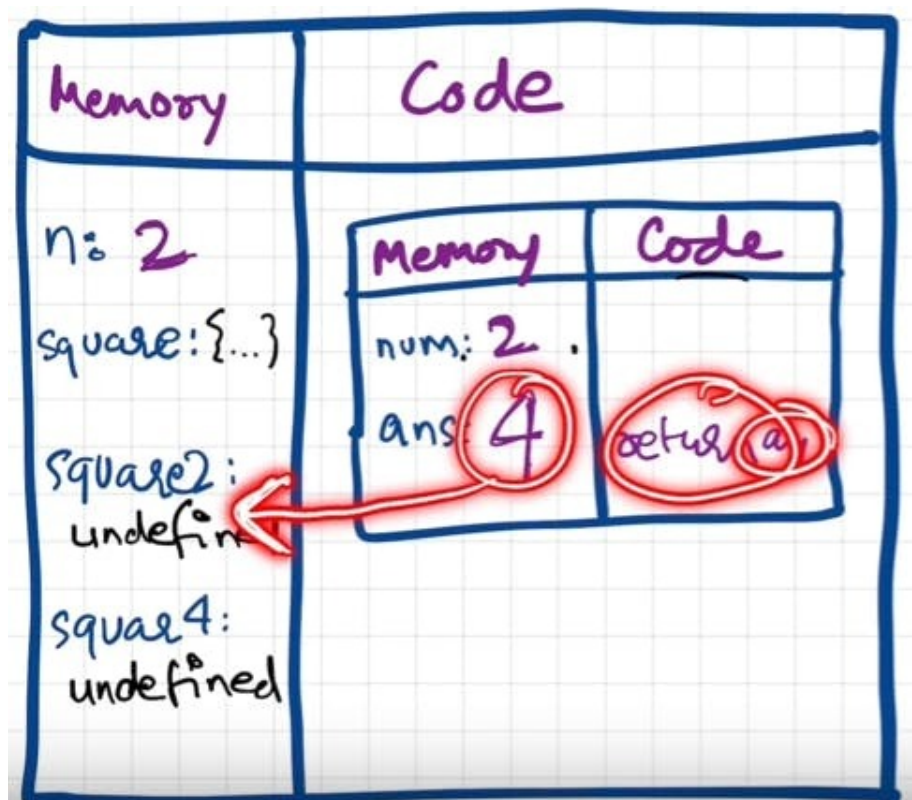 Memory
Code
n: 2
square: {...}
square2:
undefin
squar4:
undefined
Memory
Code
num: 2
ans 4
retur